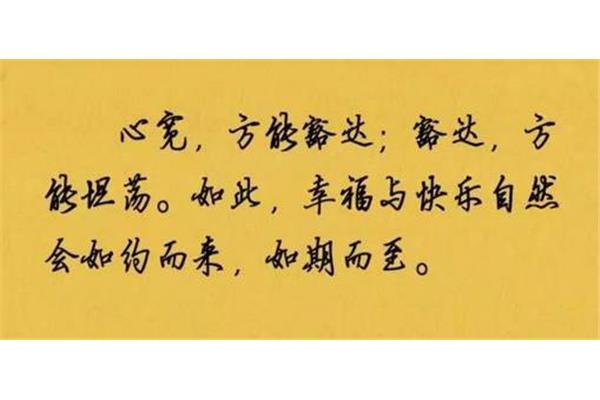 心宽，方能豁达；豁达，方
能坦荡。如此，幸福与快乐自然
会如约而来，如期而至。